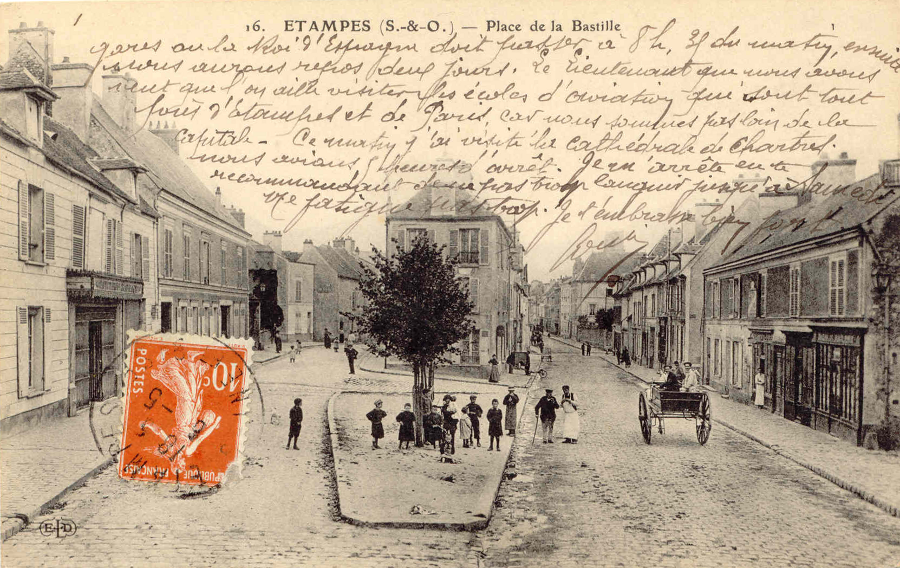 1
16. ETAMPES (S.-&-O.) — Place de la Bastille
1
gares ou la Roi d'Espagne doit passer à 8h, 35 du matin, ensuite
nous aurons repos deux jours. Le lieutenant que nous avons
veut que l'on aille visiter les écoles d'aviation qui sont tout
près d'Etampes et de Paris, car nous sommes pas loin de la
Capitale - Ce matin j'ai visité la Cathédrale de Chartres.
nous avions heures d'arrêt. Je m'arrête en te
recommandant de ne pas trop languir jusqu'à Samedi
Ne fatigue pas trop. Je t'embrasse bien fort
POSTES
10c
REPUBLIQUE FRANÇAISE
ELD